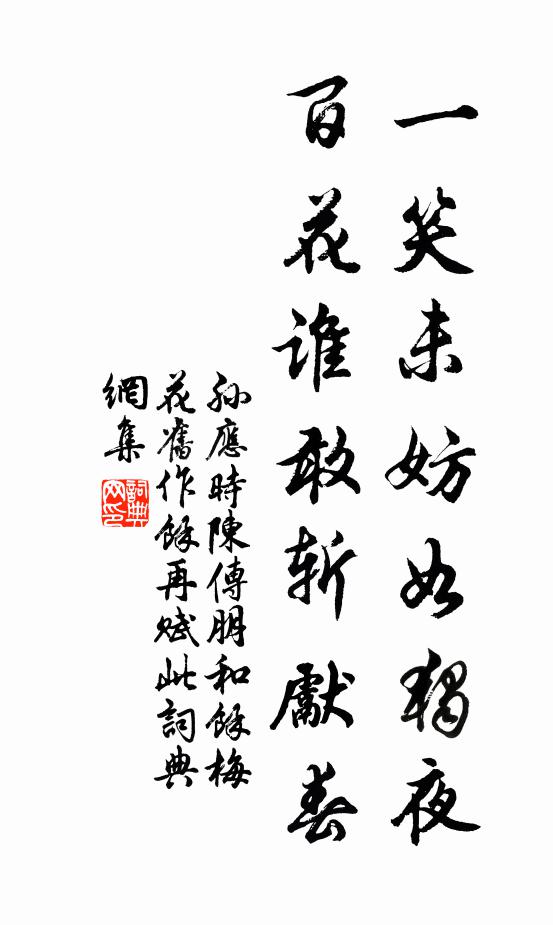 一笑未妨如獨夜
百花誰敢斬獻春
孫應時陳傅朋和餘梅
花舊作餘再賦此詞典
網集
詞典
网印